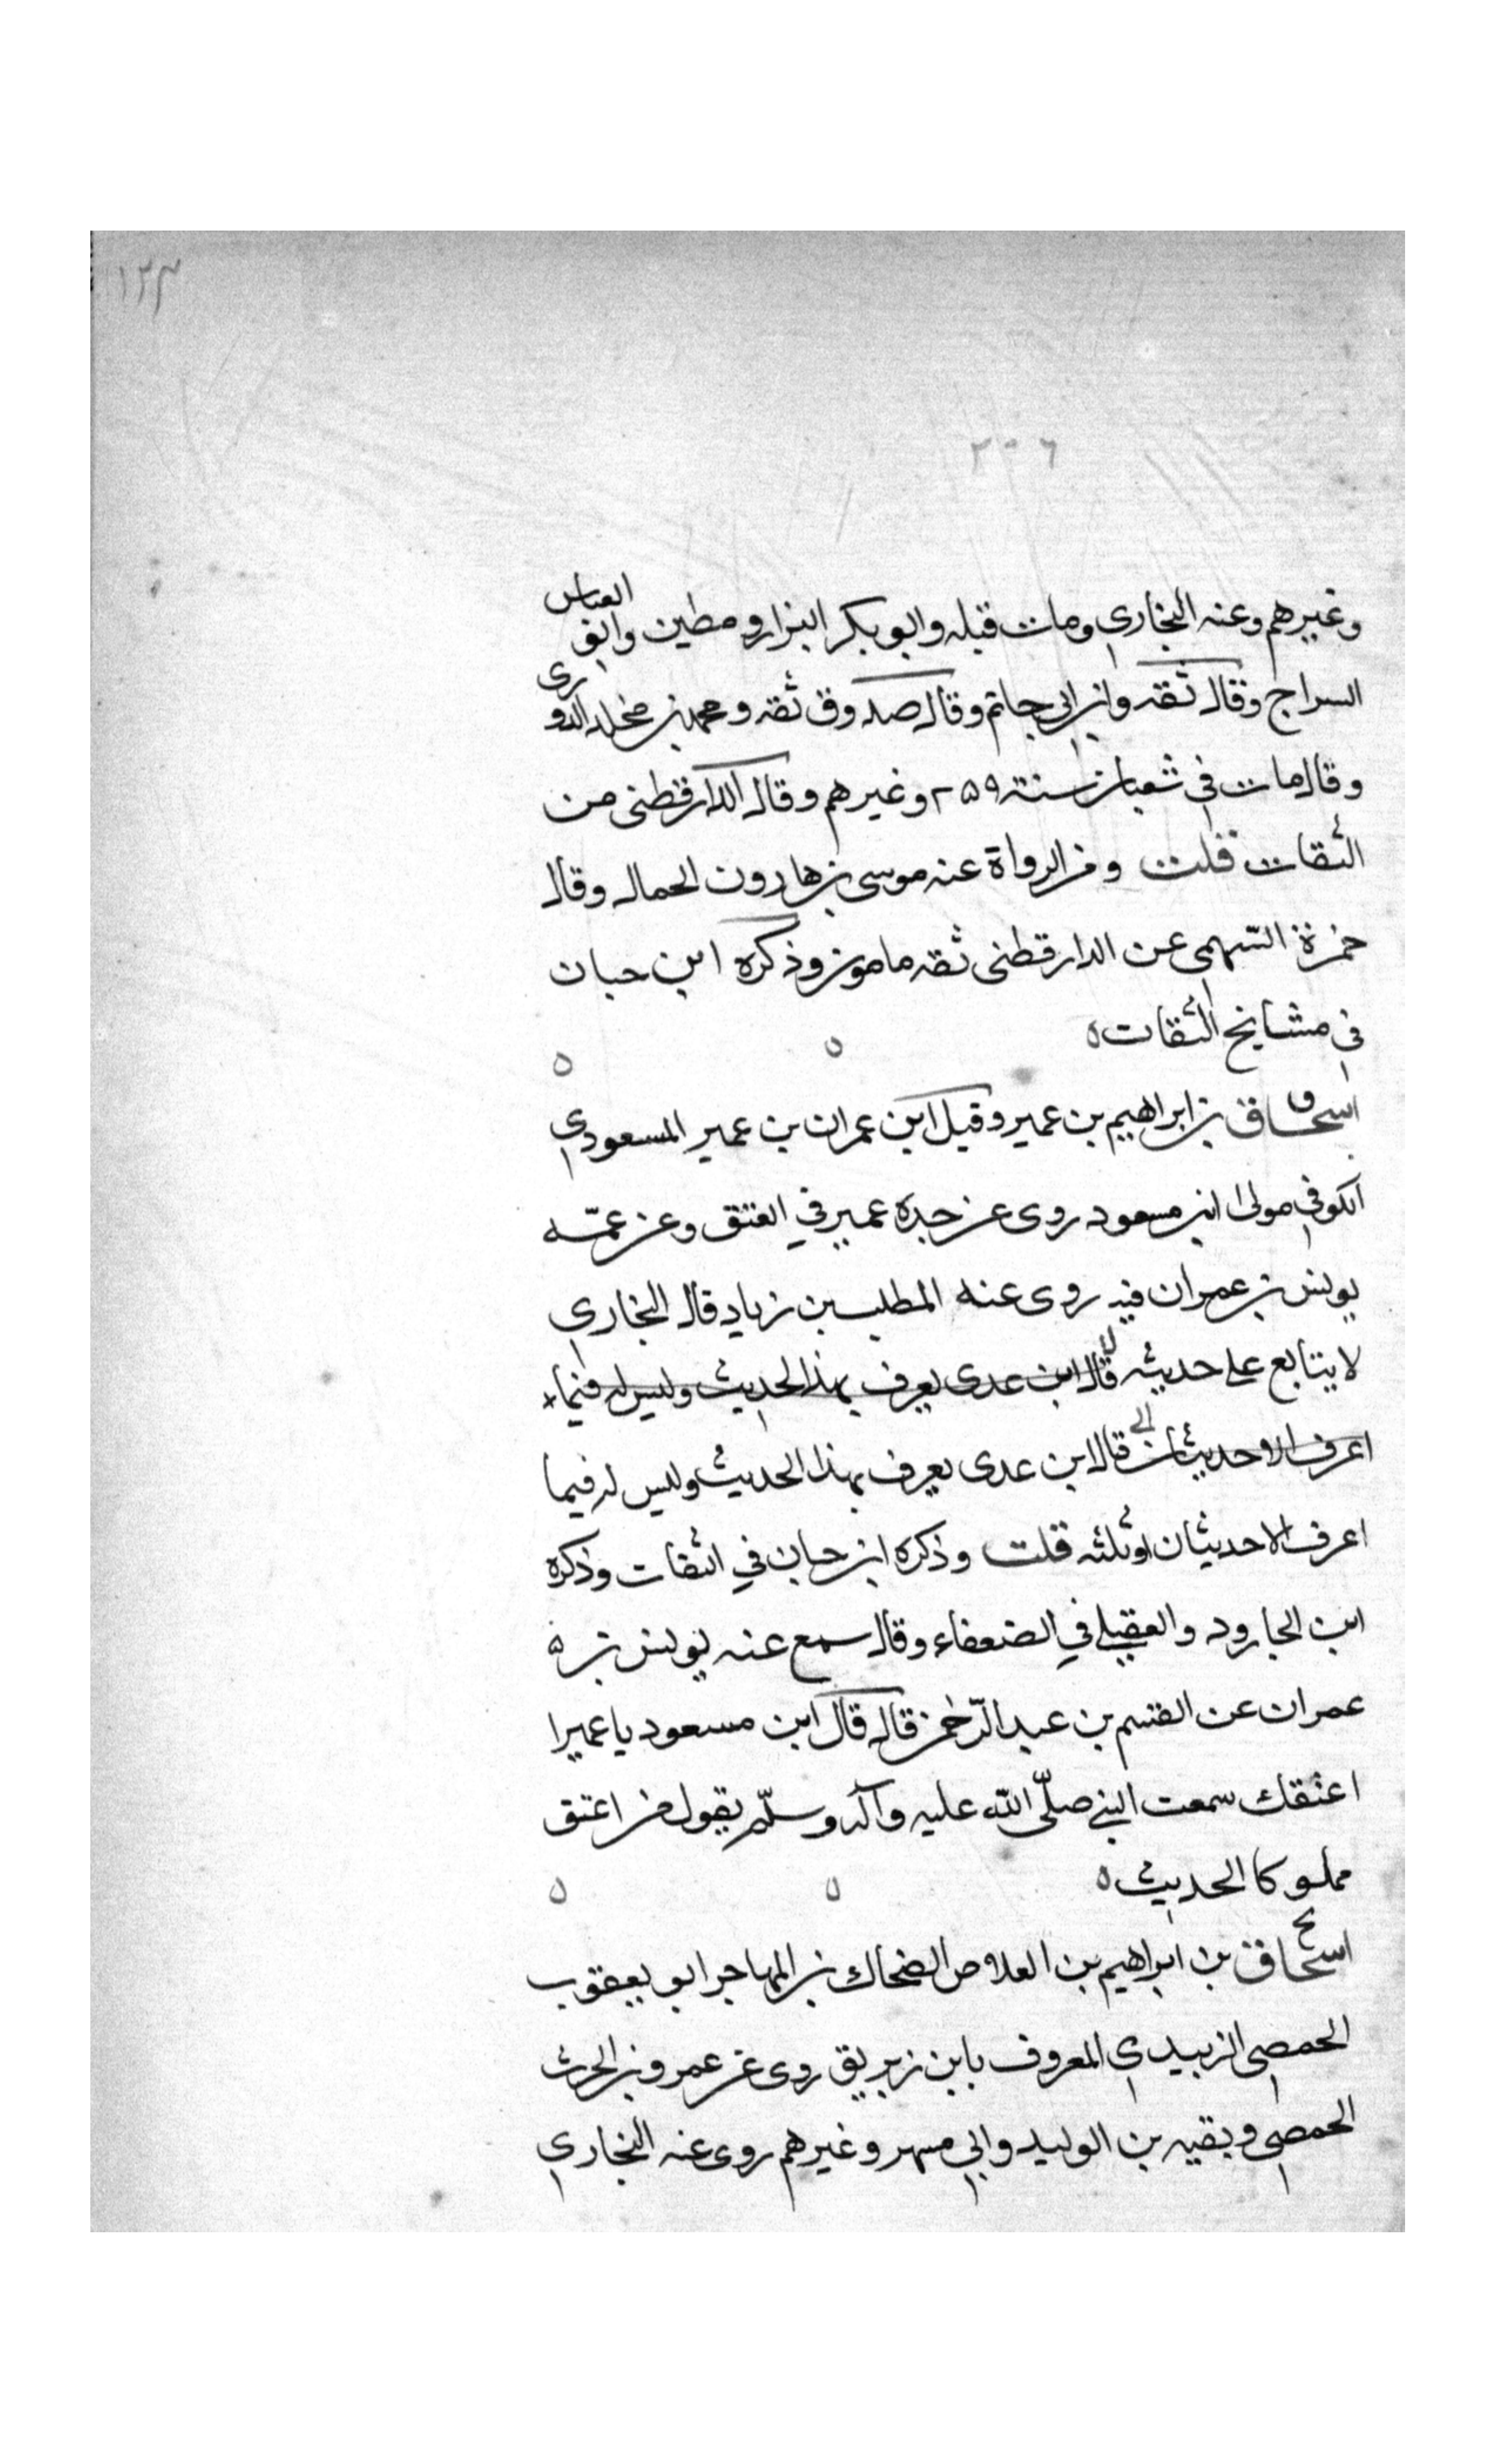 ١٢٣
٢٠٦
وغيرهم وعنه البخاري ومات قبله وابو بكر البزار ومطين وابو العباس
السراج وقال ثقه وابن ابي حاتم وقال صدوق ثقه ومحمد بن مخلد الدورى
وقال مات في شعبان سنة ٢٥٩ وغيرهم وقال الدارقطنى من
الثقات قلت ومن الرواة عنه موسى بن هارون الحمال وقال
حمزة السهمى عن الدارقطنى ثقه مامون وذكره ابن حبان
في مشايخ الثقات ه ه ه
اسحاق بن ابراهيم بن عمير وقيل ابن عمران بن عمير المسعودي
الكوفي مولى ابن مسعود روى عن جده عمير في العتق وعن عمّه
يونس بن عمران فيه روى عنه المطلب بن زياد قال البخاري
لا يتابع على حديثه قال ابن عدى يعرف بهذا الحديث وليس له فيما
اعرف الا حديثان قال ابن عدى يعرف بهذا الحديث وليس له فيما
اعرف الا حديثان او ثلثه قلت وذكره ابن حبان في الثقات وذكره
ابن الجارود والعقيلي في الضعفاء وقال سمع عنه يونس بن ه
عمران عن القسم بن عبد الرّحمن قال قال ابن مسعود يا عميرا
اعتقك سمعت النبي صلّى الله عليه وآله وسلّم يقول من اعتق
مملوكا الحديث ه ه ه
اسحاق بن ابراهيم بن العلاء الضحاك بن المهاجر ابو يعقوب
الحمصي الزبيدي المعروف بابن زبريق روى عن عمرو بن الحرث
الحمصي وبقيه بن الوليد وابي مسهر وغيرهم روى عنه البخاري